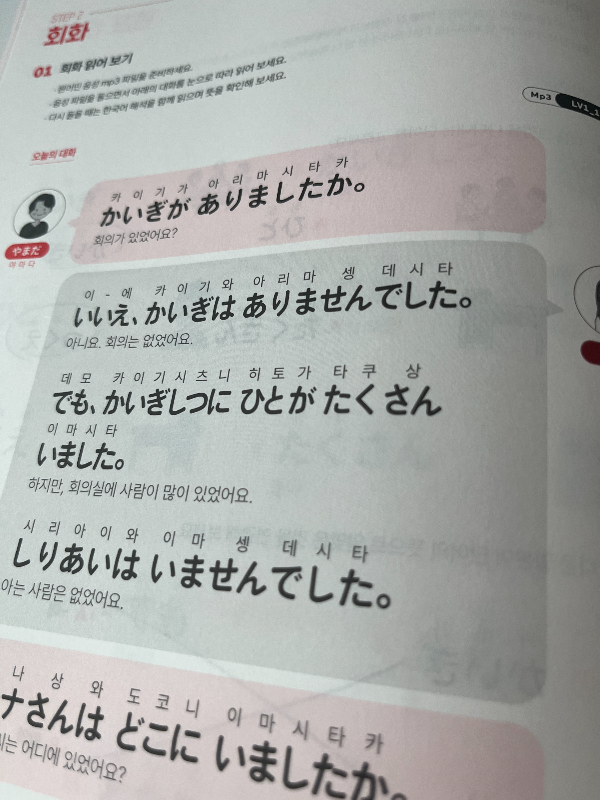 STEP 2
회화
01 회화 읽어 보기
· 원어민 음성 mp3 파일을 준비하세요.
· 음성 파일을 들으면서 아래의 대화를 눈으로 따라 읽어 보세요.
· 다시 들을 때는 한국어 해석을 함께 읽으며 뜻을 확인해 보세요.
Mp3 LV1_1
오늘의 대화
카 이 기 가 아 리 마 시 타 카
かいぎが ありましたか。
회의가 있었어요?
やまだ
야마다
이 - 에 카 이 기 와 아 리 마 셍 데 시 타
いいえ、かいぎは ありませんでした。
아니요. 회의는 없었어요.
데 모 카 이 기 시 츠 니 히 토 가 타 쿠 상
でも、かいぎしつに ひとが たくさん
이 마 시 타
いました。
하지만, 회의실에 사람이 많이 있었어요.
시 리 아 이 와 이 마 셍 데 시 타
しりあいは いませんでした。
아는 사람은 없었어요.
나 상 와 도 코 니 이 마 시 타 카
ナさんは どこに いましたか。
는 어디에 있었어요?